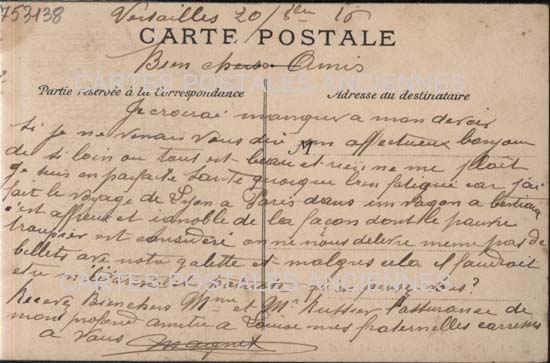 753138
Versailles 20/8bre 15
CARTE POSTALE
Bien chers Amis
Partie réservée à la Correspondance
Adresse du destinataire
Je croirai manquer a mon devoir
si je ne venais vous dire un affectueux bonjour
de si loin ou tout est beau et rien ne me plait
Je suis en parfaite santé quoique bien fatigué car j'ai
fait le voyage de Lyon a Paris dans un vagon a bestiaux
c'est affreux et ignoble de la façon dont le pauvre
troupier est considéré on ne nous delivre meme pas de
billets avec notre galette et malgres cela il faudrait
vous?
Recevez Bien chers Mme et Mr l'assurance de
mon profond amitié a Louise mes fraternelles carresses
a vous
CARTES POSTALES ANCIENNES
CARTES POSTALES ANCIENNES